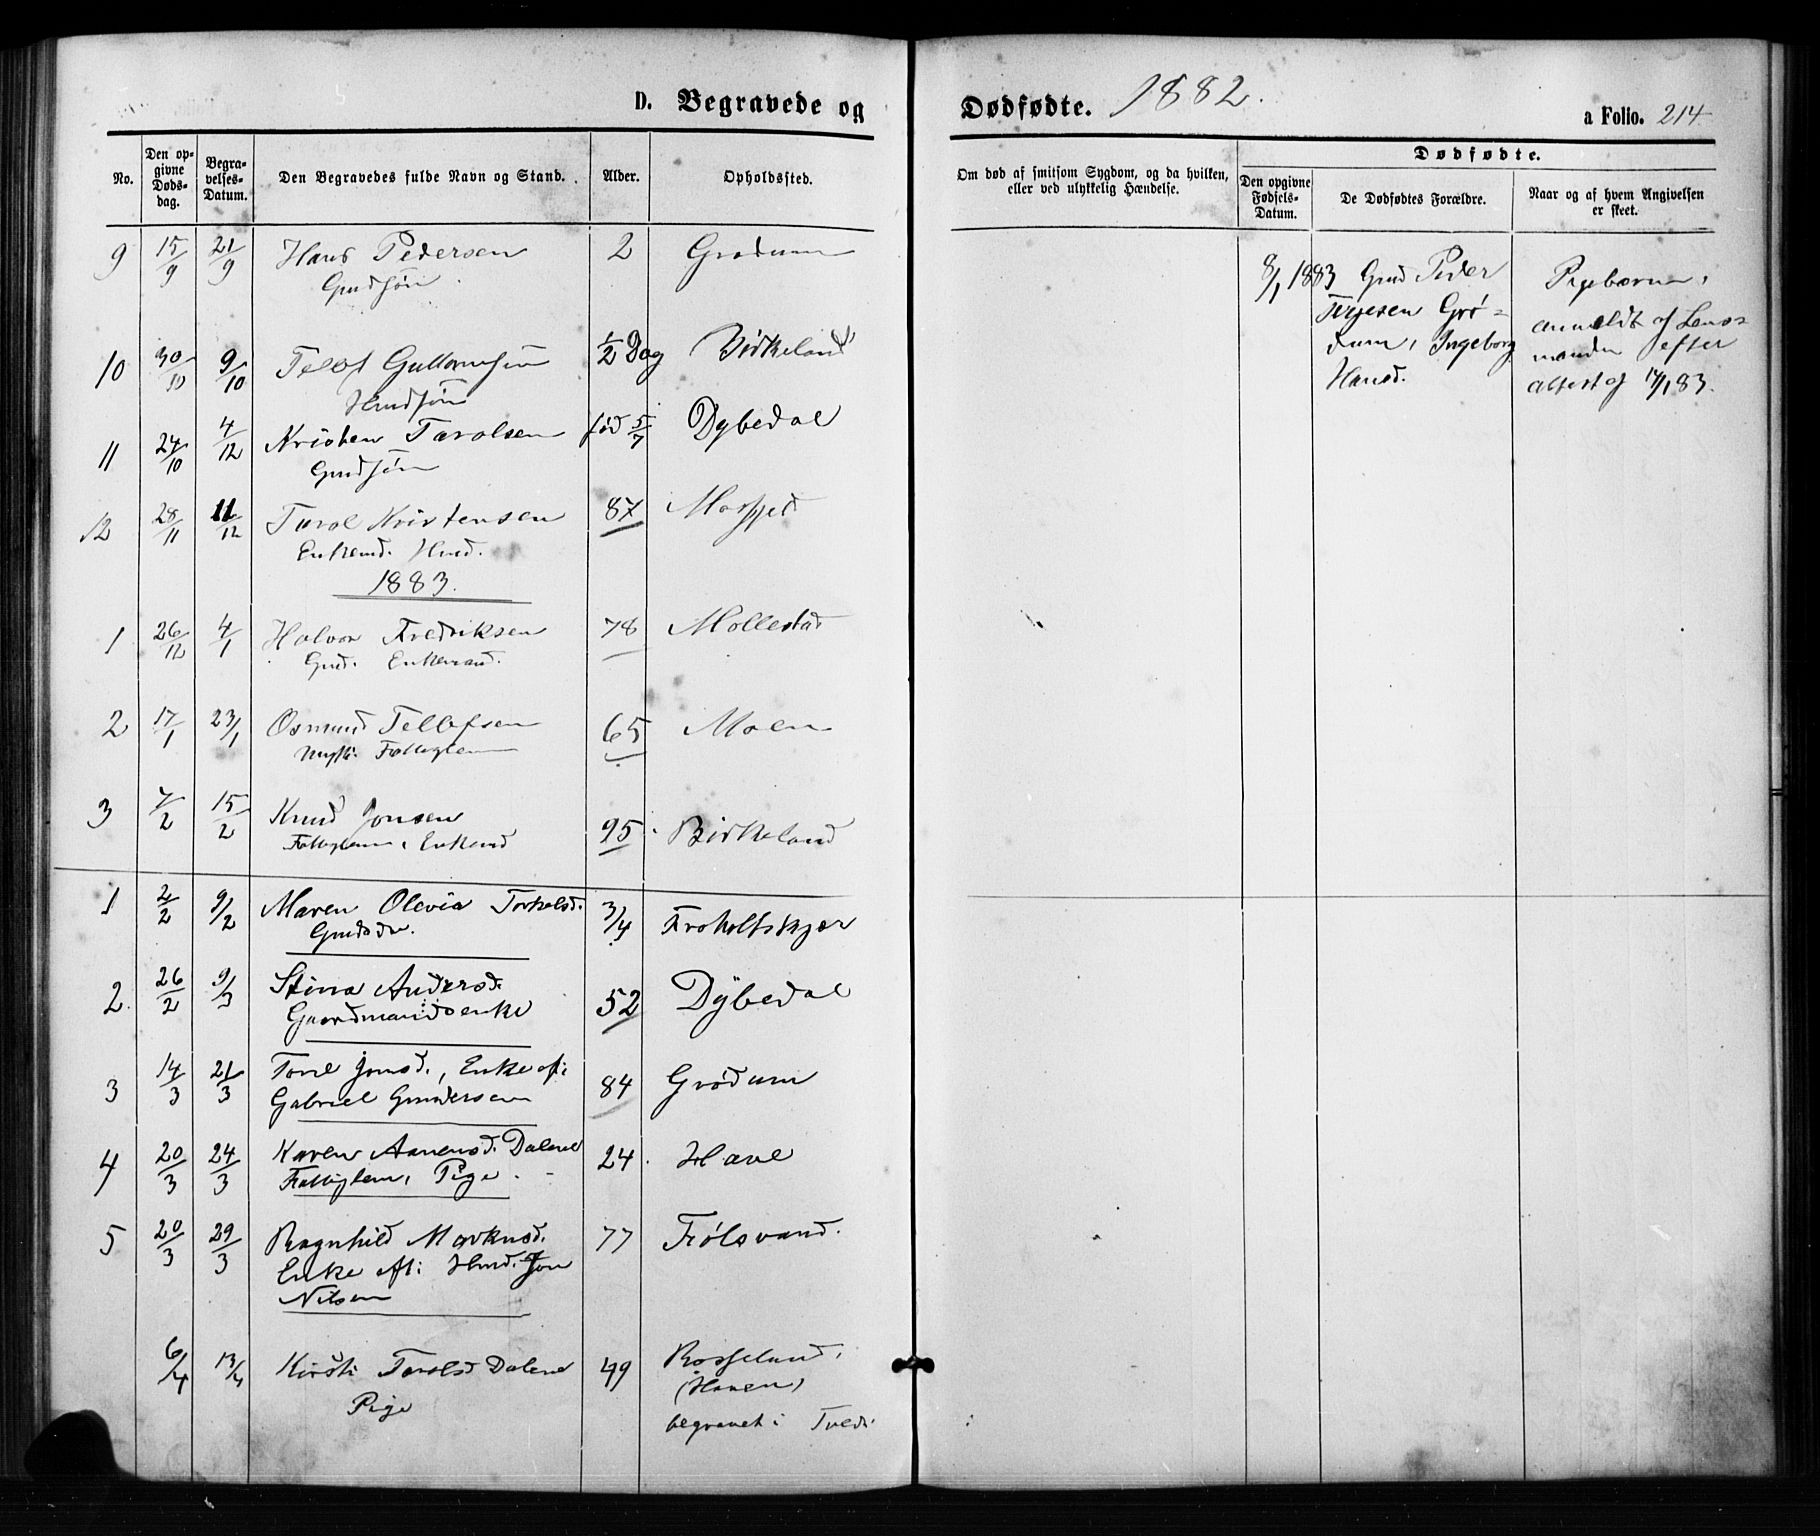 D. Begravede og Dødfødte. 1882.
a Folio. 214
No.
Den op-
givne
Døds-
dag.
Begra-
velses-
Datum.
Den Begravedes fulde Navn og Stand.
Alder.
Opholdssted.
Om død af smitsom Sygdom, og da hvilken,
eller ved ulykkelig Hændelse.
Dødfødte.
Den opgivne
Fødsels-
Datum.
De Dødfødtes Forældre.
Naar og af hvem Angivelsen
er skeet.
9 15/9 21/9 Hans Pedersen 2 Grødum
Gmdsøn
8/1 1883 Gmd Peder
Terjesen Grø-
dum, Ingeborg
Hansd.
Pigebarn,
anmeldt af Lens-
manden efter
attest af 14/1 83.
10 30/10 9/10 Tellef Gullowsen 1/2 Dag Birkeland
Hmdsøn
11 24/10 4/12 Kristen Tarolsen fød 5/7 Dybedal
Gmdsøn
12 28/11 11/12 Tarol Kristensen 87
Enkemd. Hmd.
1883.
1 26/12 4/1 Halvor Fredriksen 78 Mollestad
Gmd. Enkemand.
2 17/1 23/1 Osmund Tellefsen 65 Moen
Fattiglem
3 7/2 15/2 Knud Jonsen 95 Birkeland
Fattiglem, Enkemd
1 2/2 9/2 Maren Olevia Torkelsd. 3/4 Froholtskjær
Gmdsdr.
2. 26/2 9/3 Stina Andersd. 52 Dybedal
Gaardmandsenke
3 14/3 21/3 Torel Jonsd., Enke eft: 84 Grødum
Gabriel Gundersen
4 20/3 24/3 Karen Aanensd. Dalene 24 Have
Fattiglem, Pige.
5 20/3 29/3 Ragnhild Markusd. 77 Tølsvand.
Enke eft: Hmd. Jon
Nilsen
6/4 13/4 Kirsti Tarolsd Dalene 49 Rosseland,
Pige
(Haven)
begravet i Tveid.